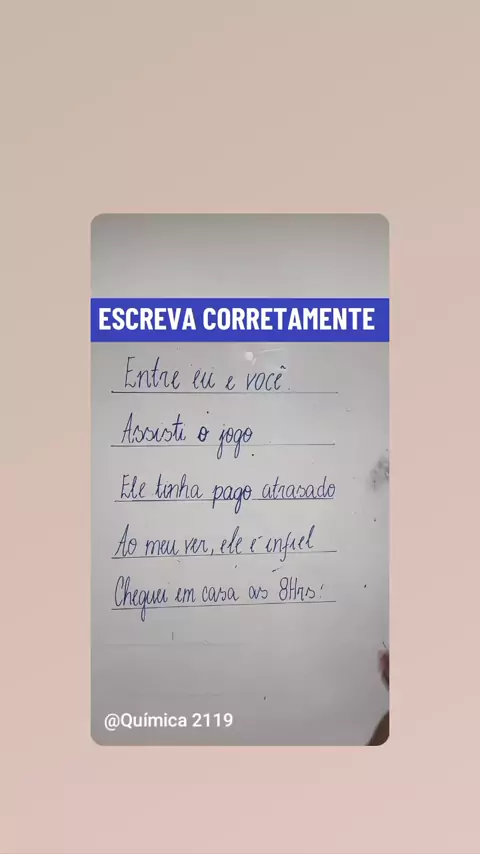 ESCREVA CORRETAMENTE
Entre eu e você.
Assisti o jogo
Ele tinha pago atrasado
Ao meu ver, ele é infiel
Cheguei em casa as 8Hrs!
@Química 2119